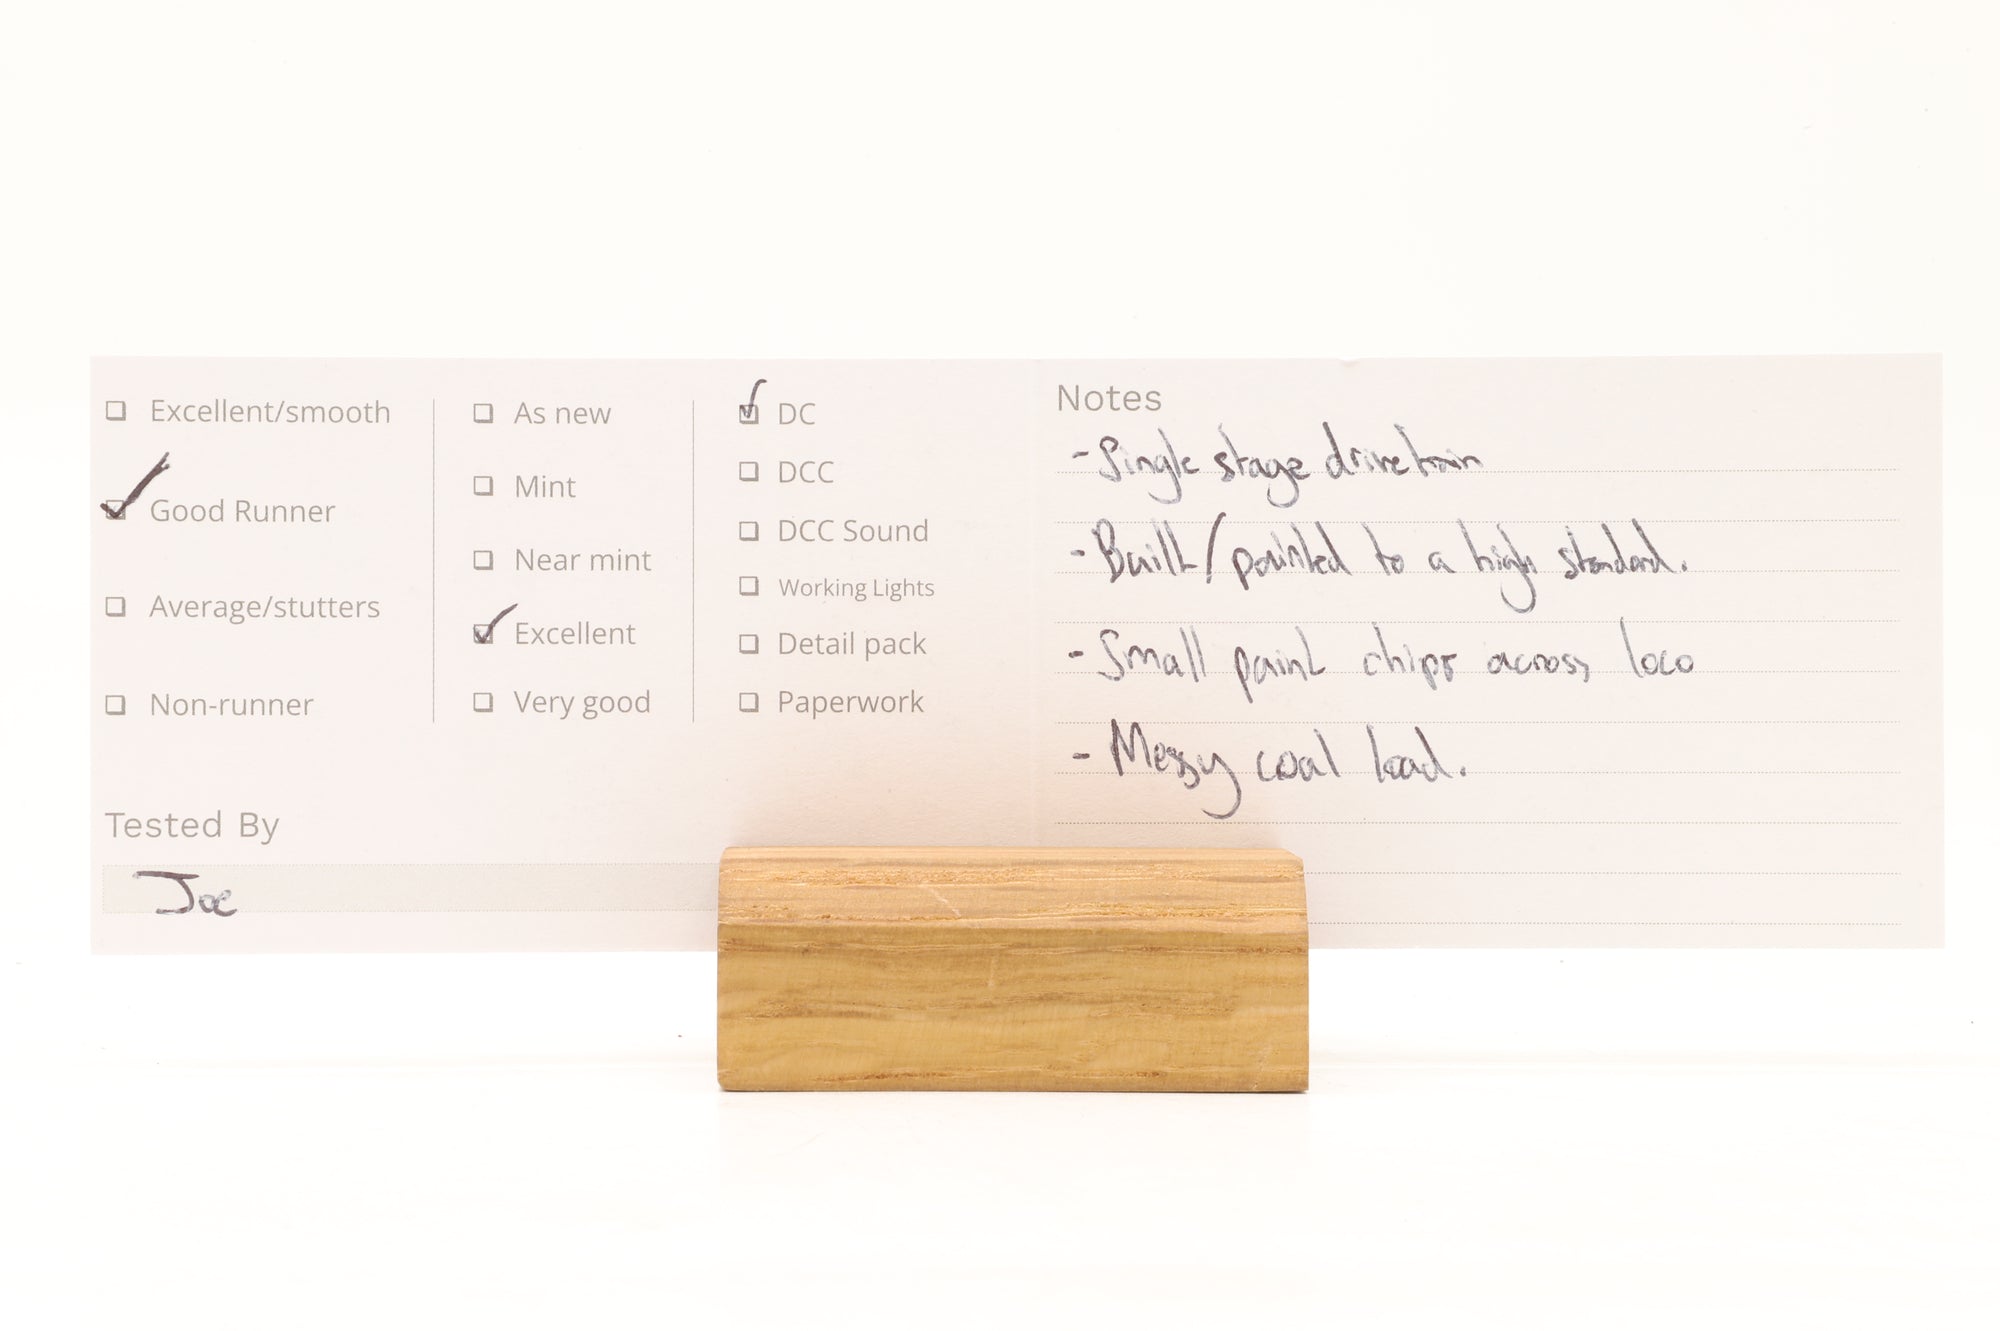 Excellent/smooth
Good Runner
Average/stutters
Non-runner
As new
Mint
Near mint
Excellent
Very good
DC
DCC
DCC Sound
Working Lights
Detail pack
Paperwork
Tested By
Joe
Notes
- Single stage drivetrain
- Built/painted to a high standard.
- Small paint chips across loco
- Messy coal load.